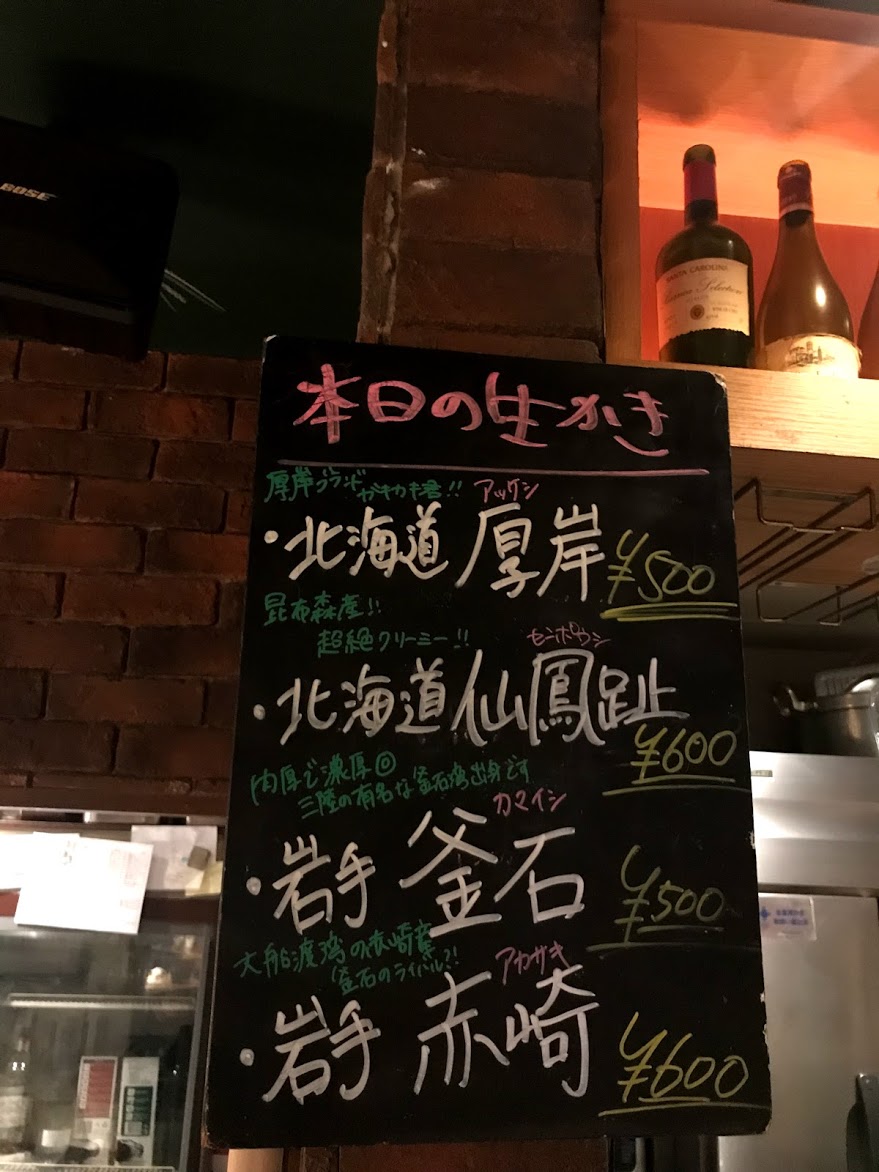 BOSE
SANTA CAROLINA
本日の生かき
厚岸ブランド
カキカキ君!! アッケシ
・北海道 厚岸 ¥500
昆布森産!!
超絶クリーミー!! センポウシ
・北海道 仙鳳趾
¥600
肉厚で濃厚◎
三陸の有名な釜石湾出身です
カマイシ
・岩手 釜石 ¥500
大船渡湾の赤崎産
釜石のライバル?! アカサキ
・岩手 赤崎 ¥600